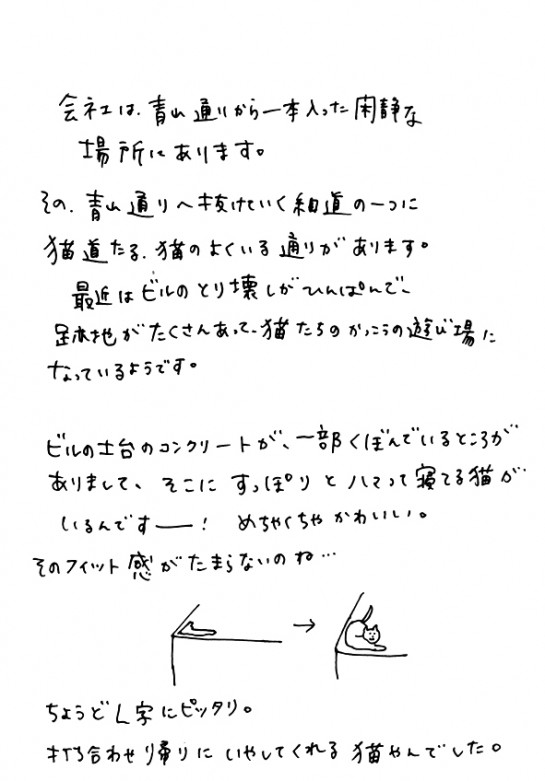 会社は、青山通りから一本入った閑静な
場所にあります。
その、青山通りへ抜けていく細道の一つに
猫道たる、猫のよくいる通りがあります。
最近はビルのとり壊しがひんぱんで、
跡地がたくさんあって、猫たちのかっこうの遊び場に
なっているようです。
ビルの土台のコンクリートが、一部くぼんでいるところが
ありまして、そこにすっぽりとハマって寝てる猫が
いるんですー！ めちゃくちゃかわいい。
そのフィット感がたまらないのね…
→
ちょうどL字にピッタリ。
打ち合わせ帰りにいやしてくれる猫やんでした。